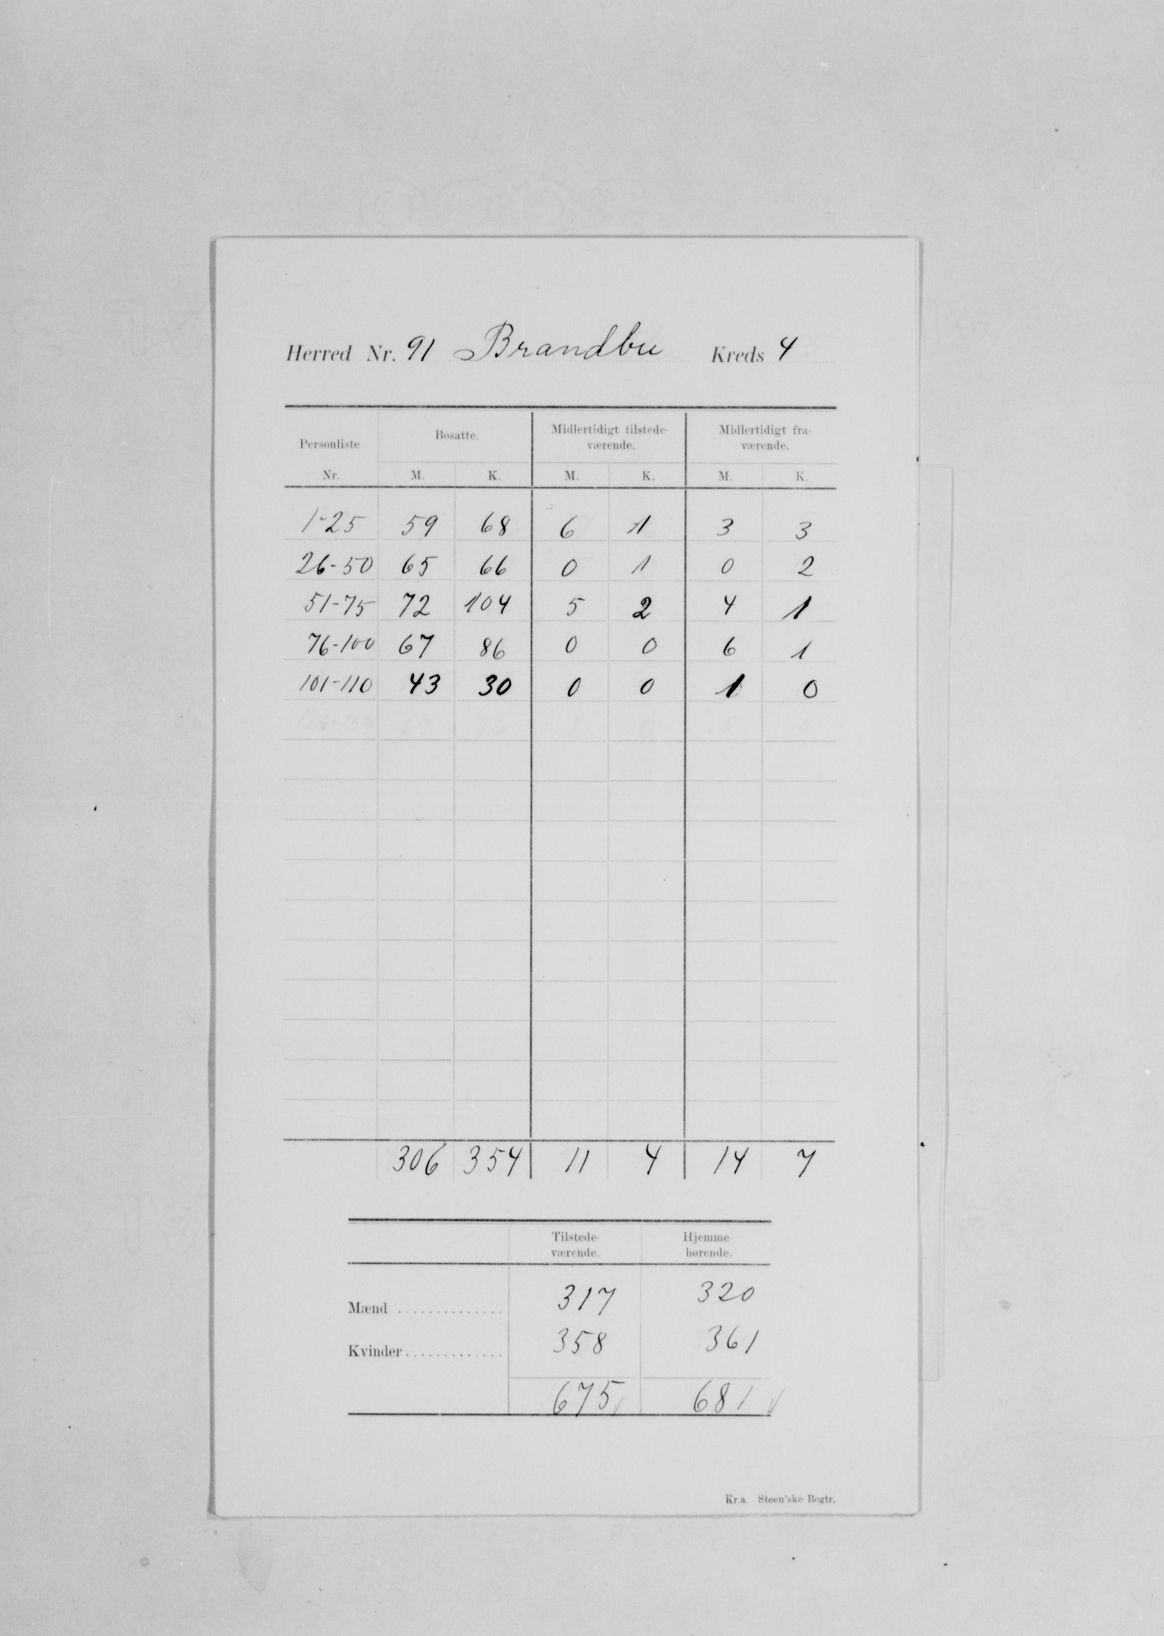 Herred Nr. 91 Brandbu Kreds 4
Personliste Nr. Bosatte. Midlertidigt tilstede- værende. Midlertidigt fra- værende.
M. K. M. K. M. K.
1-25 59 68 6 1 3 3
26-50 65 66 0 1 0 2
51-75 72 104 5 2 4 1
76-100 67 86 0 0 6 1
101-110 43 30 0 0 1 0
306 354 11 4 14 7
Tilstede- værende. Hjemme- hørende.
Mænd .............. 317 320
Kvinder ............. 358 361
675 681
Kr.a Steen'ske Bogtr.